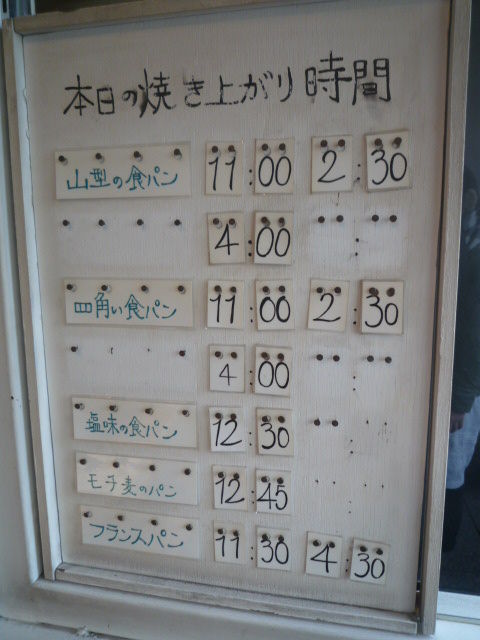 本日の焼き上がり時間
山型の食パン 11:00 2:30
4:00
四角い食パン 11:00 2:30
4:00
塩味の食パン 12:30
モチ麦のパン 12:45
フランスパン 11:30 4:30